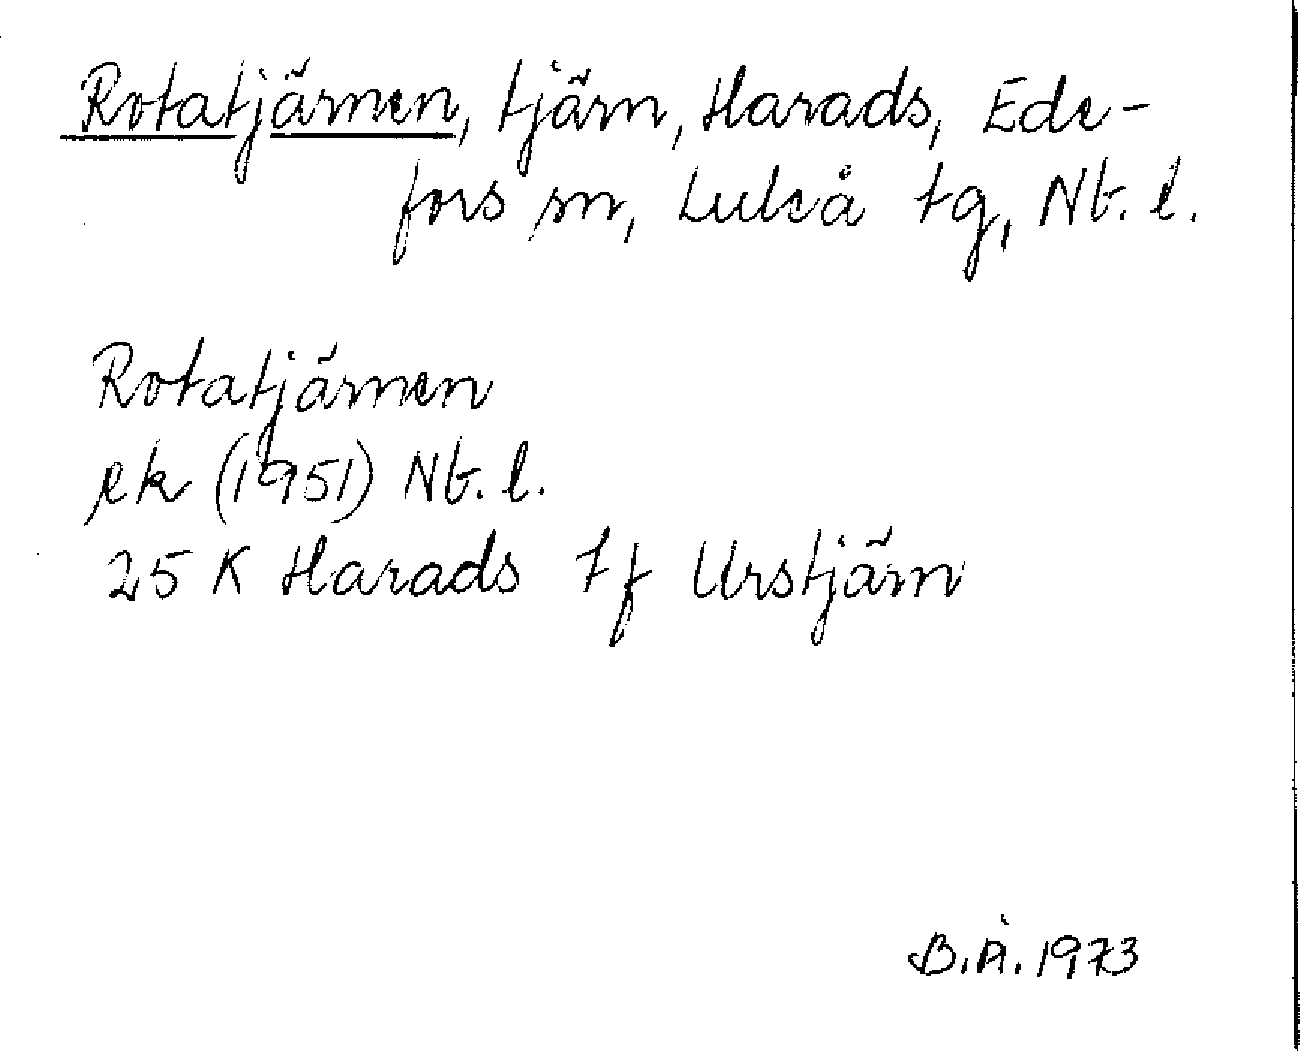 Rotatjärnen, tjärn, Harads, Ede-
fors sn, Luleå tg, Nb. l.
Rotatjärnen
ek (1951) Nb. l.
25 K Harads 7 f Urstjärn
B.Å. 1973